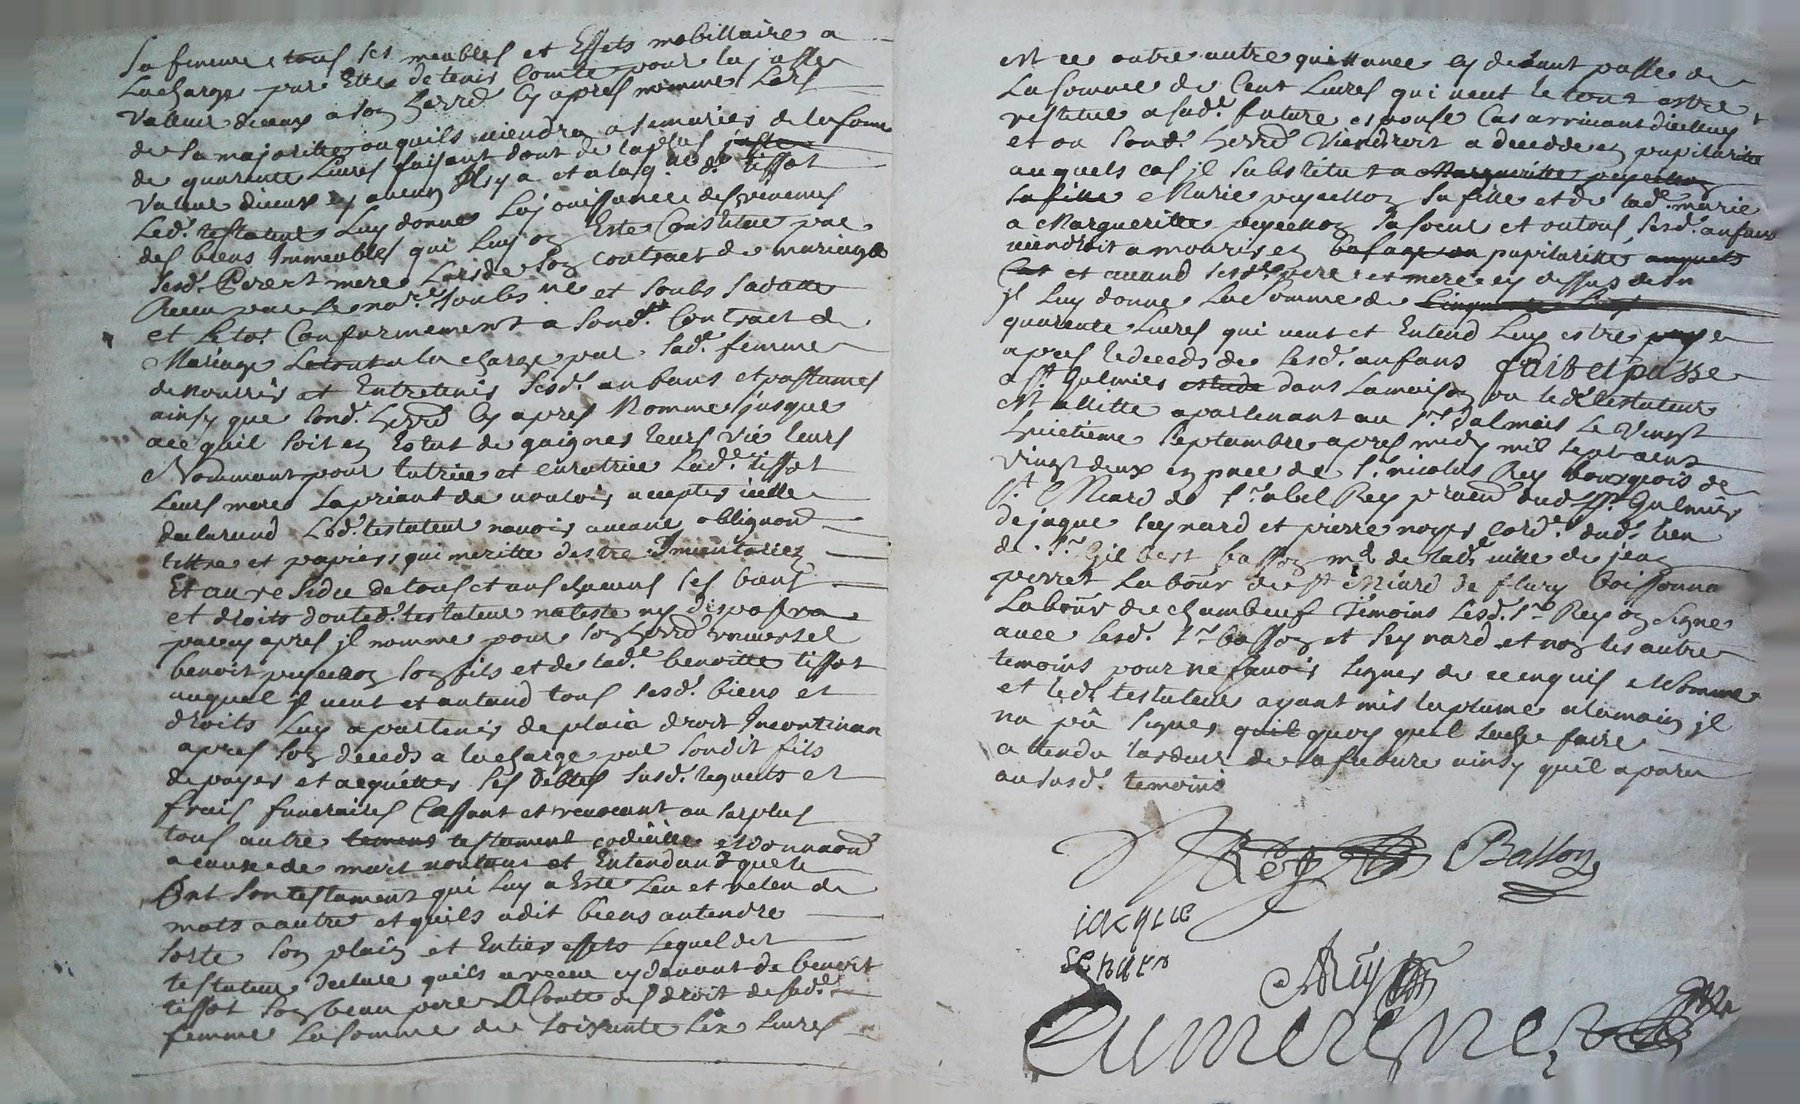 Sa femme tous ses meubles et Effets mobilliaire a
La charge par Elle de tenir Comte pour la juste
Valeur diceux a son herrd. Cy apres nomme Lors
de sa majoritte ou quils viendra a se maries de la some
de quarante Livres faisant dont de la plus juste
Valeur diceux sy aucun Il y a et a la q. tissot
Led. testateur Luy donne La jouissance des revenus
des biens Immeubles qui Luy on Este Constitue par
sesd. Pere et mere Lors de son contract de mariage
Receu par Le no.re soubs.ne et soubs sa datte
et Le to. Conformement a sond. Contract de
Mariage Le tout a la charge par sad. femme
de nourrir et Entretenir sesd. anfans et postumes
ainsy que sond. herrd Cy apres Nomme jusque
ace quil soit en Estat de gaigner leurs vie leurs
Nommant pour tutrice et curatrice Lad.e tissot
Leurs mere La priant de vouloir accepter icelle
declarand Led. testateur navoir aucune obligaon
tittre et papiers qui meritte destre Inventoriez
Et au residu de tous et uns chacuns ses biens
et droits dont led. testateur na teste ny dispose
par cy apres jl nomme pour son herrd universel
benoit peyechon son fils et de lad.e benoitte tissot
auquel jl veut et antand tous sesd. biens et
droits Luy apartenir de plain droit Incontinan
apres son deceds a la charge par sondit fils
de payer et acquitter ses debtes susd. legaets et
frais funeraires Cassant et revocant au surplus
tous autre temens testament codicille et donnaon
a cause de mort voulant et Entendant que le
pnt son testament qui Luy a Este Leu et releu de
mots a autre et quils a dit biens antendre
sorte son plain et Entier effets Lequel dit
testateur declare quils a receu cy davant de benoit
tissot son beau pere A Conte des droit de sad.e
femme La somme de soixante six Livres
et ce outre autre quittance cy devant passe de
La somme de Cent Livres qui veut le tout estre
restitue a sad.e future espouse Cas arrivant dicelluy
et ou sond. herrd Viendroit a decedde en pupilaritte
auquels cas jl substitue a Margueritte peyechon
sa fille Marie peyechon sa fille et de lad.e marie
a Margueritte peyechon sa soeur et ou tous sesd. anfans
viendroit a mourir en bas age ou pupilaritte auquels
Cas et avand sesd. pere et mere cy dessus
jl Luy donne La somme de Cinquante Livres
quarente Livres qui veut et Entend Luy estre paye
apres le deceds de sesd. anfans fait et passe
a st. Galmier estude dans La maison ou led. testateur
est allitte apartenant au sr. dalmais Le Vingt
huictieme septambre apres midy mil sept cens
Vingt deux en pnce de sr. nicolas Rey bourgeois de
st. Miard de sr. abel Rey praend dud. st. Galmier
de jaque seynard et pierre noyer cord. dud. lieu
de sr. Gilbert basson md de lad. ville de jean
perret Labour de st Miard de fleury boissonna
Labour de chambeuf temoins Lesd. srs Rey on signe
avec lesd. sr basson et seynard et non les autre
temoins pour ne savoir signer de ce enquis et somme
et led. testateur ayant mis la plume a la main jl
na pû signer quil quoy quil sache faire
attendu lardeur de sa fiebvre ainsy quil a paru
au susd. temoins
Rey Basson
iacque
senard
ARey